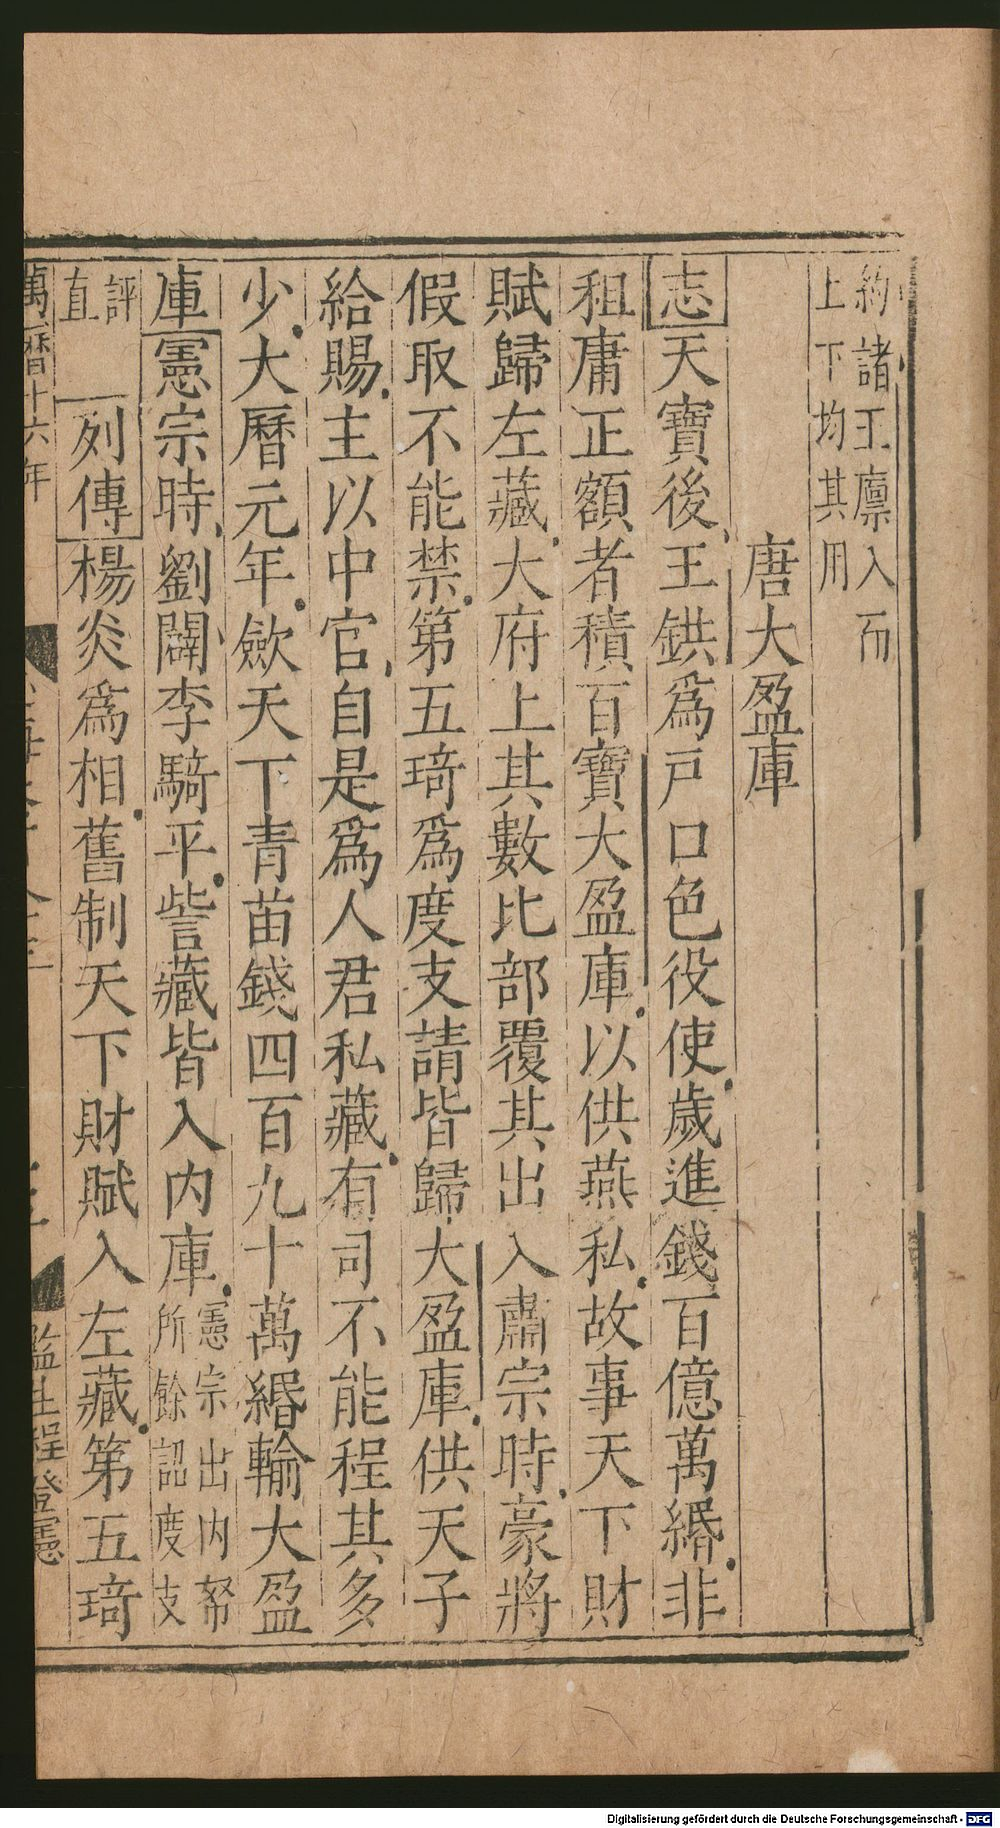 約諸王廪入而
上下均其用
唐大盈庫
志天寶後王鉷為戸口色役使歲進錢百億萬緡非
租庸正額者積百寶大盈庫以供燕私故事天下財
賦歸左藏大府上其數比部覆其出入肅宗時豪將
假取不能禁第五琦為度支請皆歸大盈庫供天子
給賜主以中官自是為人君私藏有司不能程其多
少大曆元年歛天下青苗錢四百九十萬緡輸大盈
庫憲宗時劉闢李騎平訾藏皆入内庫憲宗出内帑
所餘認度支
評
直
列傳楊炎為相舊制天下財賦入左藏第五琦
萬曆十六年
監生程登憲
Digitalisierung gefördert durch die Deutsche Forschungsgemeinschaft - DFG